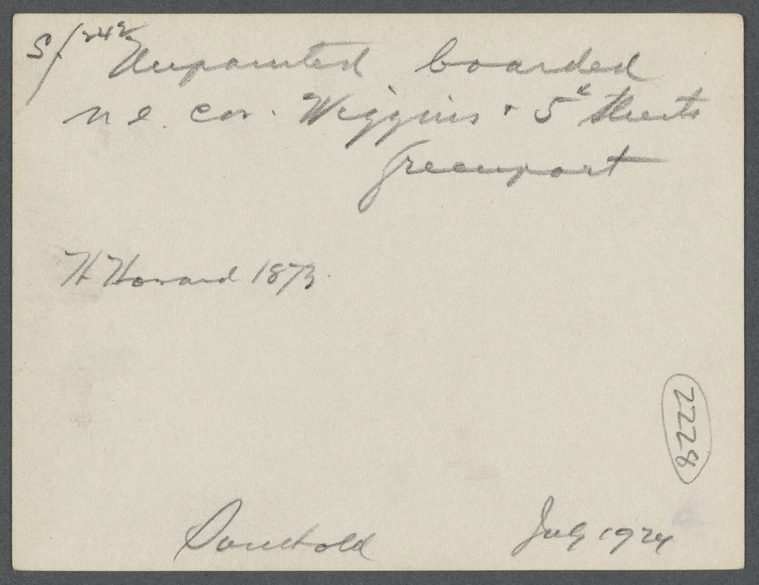 S/
Unpainted boarded
n e. cor. Wiggins + 5th Streets
Greenport
H Howard 1873.
2228
Southold July 1924